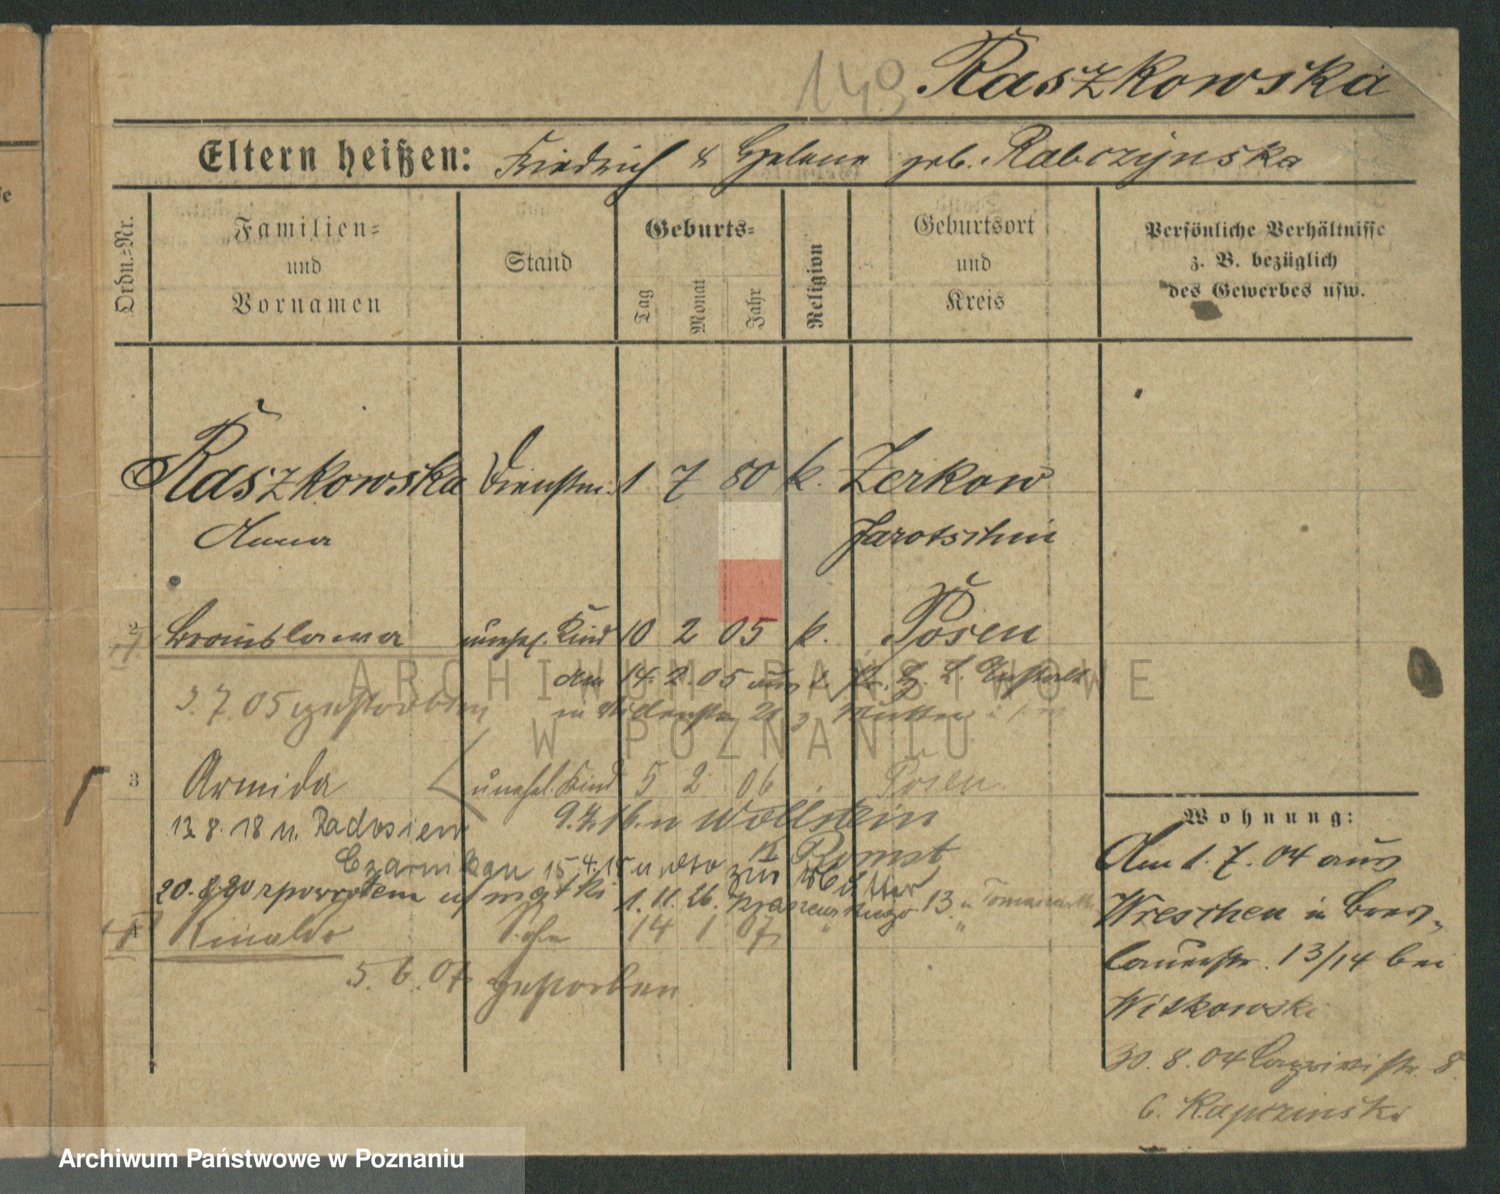 149 Raszkowska
Eltern heißen: Friedrich & Helene geb. Rabczynska
Ordn.-Nr.
Familien-
und
Vornamen
Stand
Geburts-
Tag
Monat
Jahr
Religion
Geburtsort
und
Kreis
Persönliche Verhältnisse
z. B. bezüglich
des Gewerbes usw.
Raszkowska Dienstm. 1 7 80 k. Zerkow
Anna Jarotschin
2 Bronislawa unehel. Kind 10 2 05 k. Posen
am 14.2.05 aus d. Pr. H. L. Anstalt
3.7.05 gestorben in
3 Armida unehel. Kind 5 2 06 Posen
9. 16. n Wollstein
13.8.18 n. Radosiew
Bomst
Czarnikau 15.4.19 u. dto zur Mutter
20.8.20 zpowrotem u/ matki 1.11.26. 13
4 Rinaldo Sohn 14 1 07 " "
5.6.07 gestorben
Wohnung:
Am 1.7.04 aus
Wreschen in Bres-
lauerstr. 13/14 bei
Witkowski
30.8.04 str. 8
b. Kapczinski
ARCHIWUM PAŃSTWOWE
W POZNANIU
Archiwum Państwowe w Poznaniu